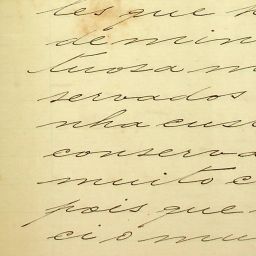 les que
de min
tuosa m
servados
nha cus
conserva
muito c
pois que
ci o mu